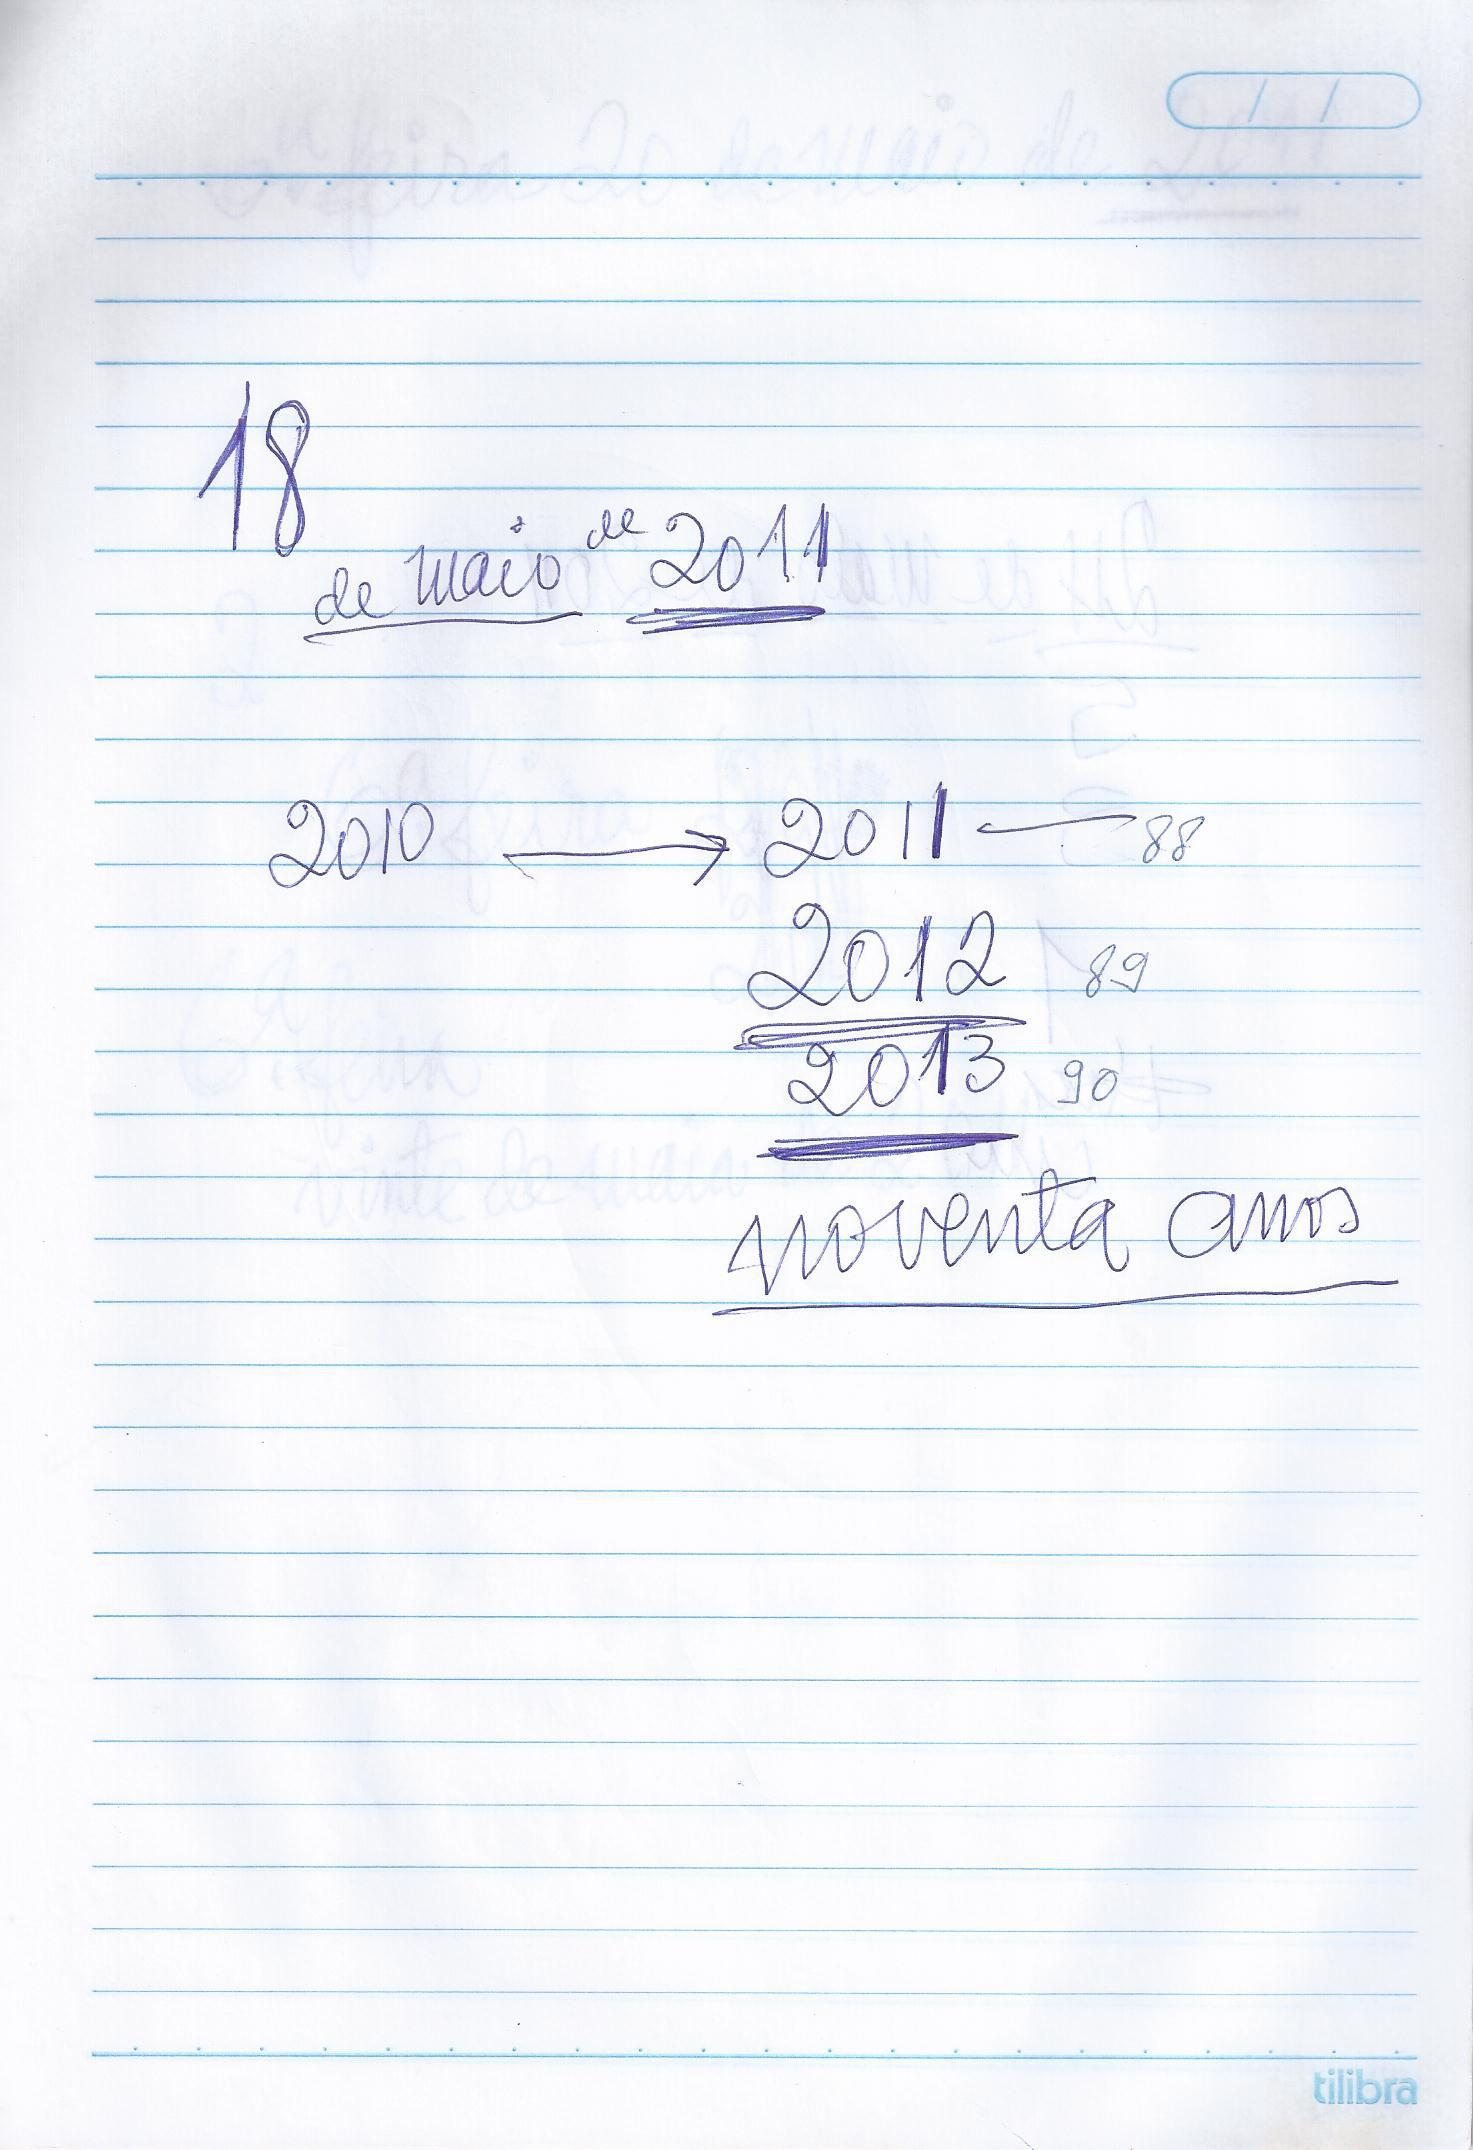 18
de maio de 2011
2010 → 2011 — 88
2012 89
2013 90
noventa anos
tilibra